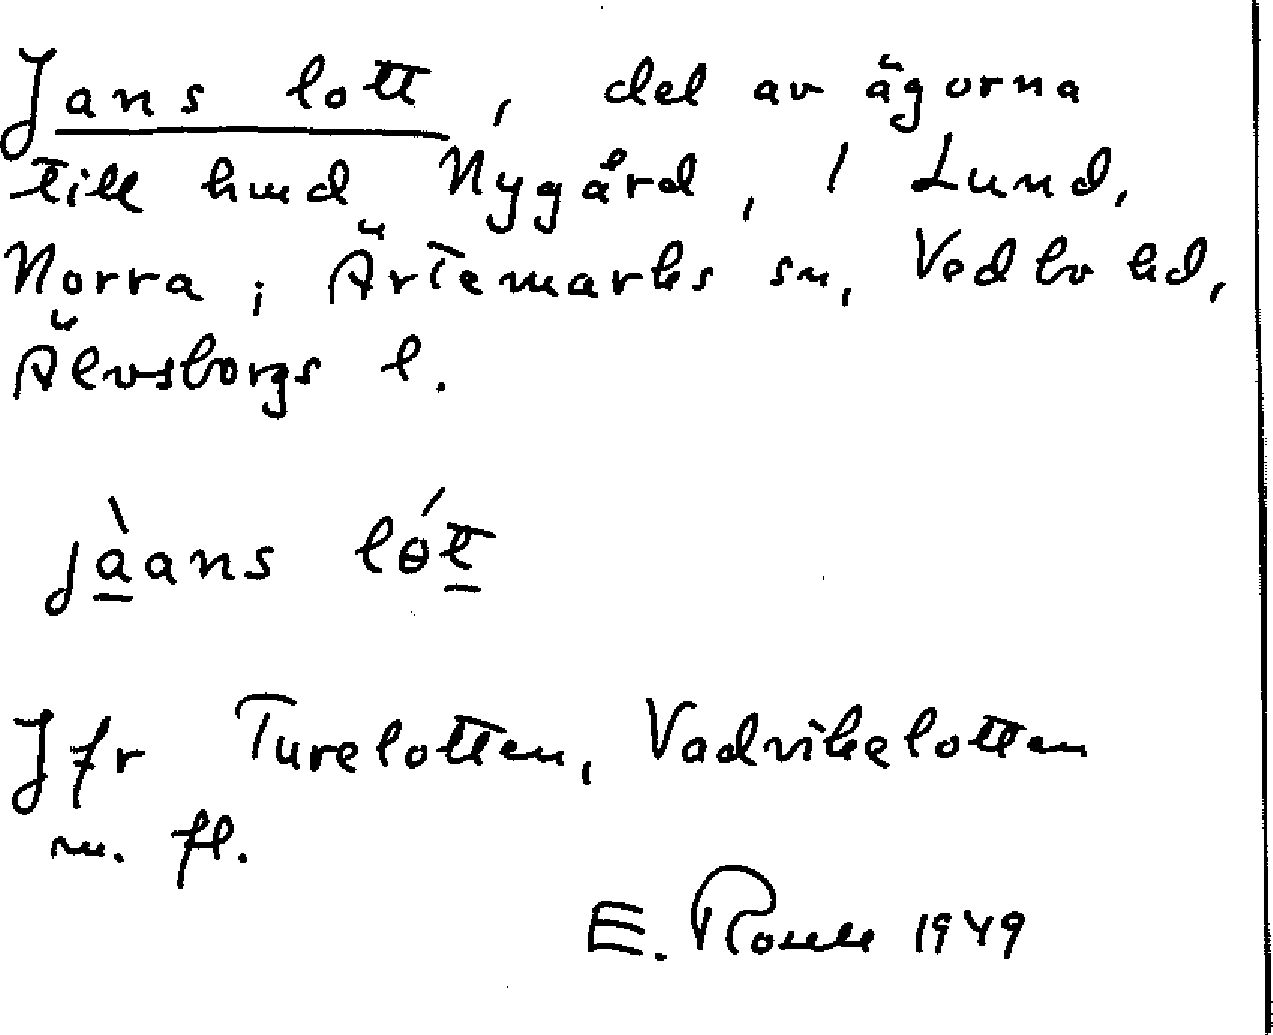 Jans lott, del av ägorna
till hmd Nygård, 1 Lund,
Norra, i Ärtemarks sn, Vedbo hd,
Älvsborgs l.
jàans lót
Jfr Turelotten, Vadvikelotten
m. fl.
E. 1949